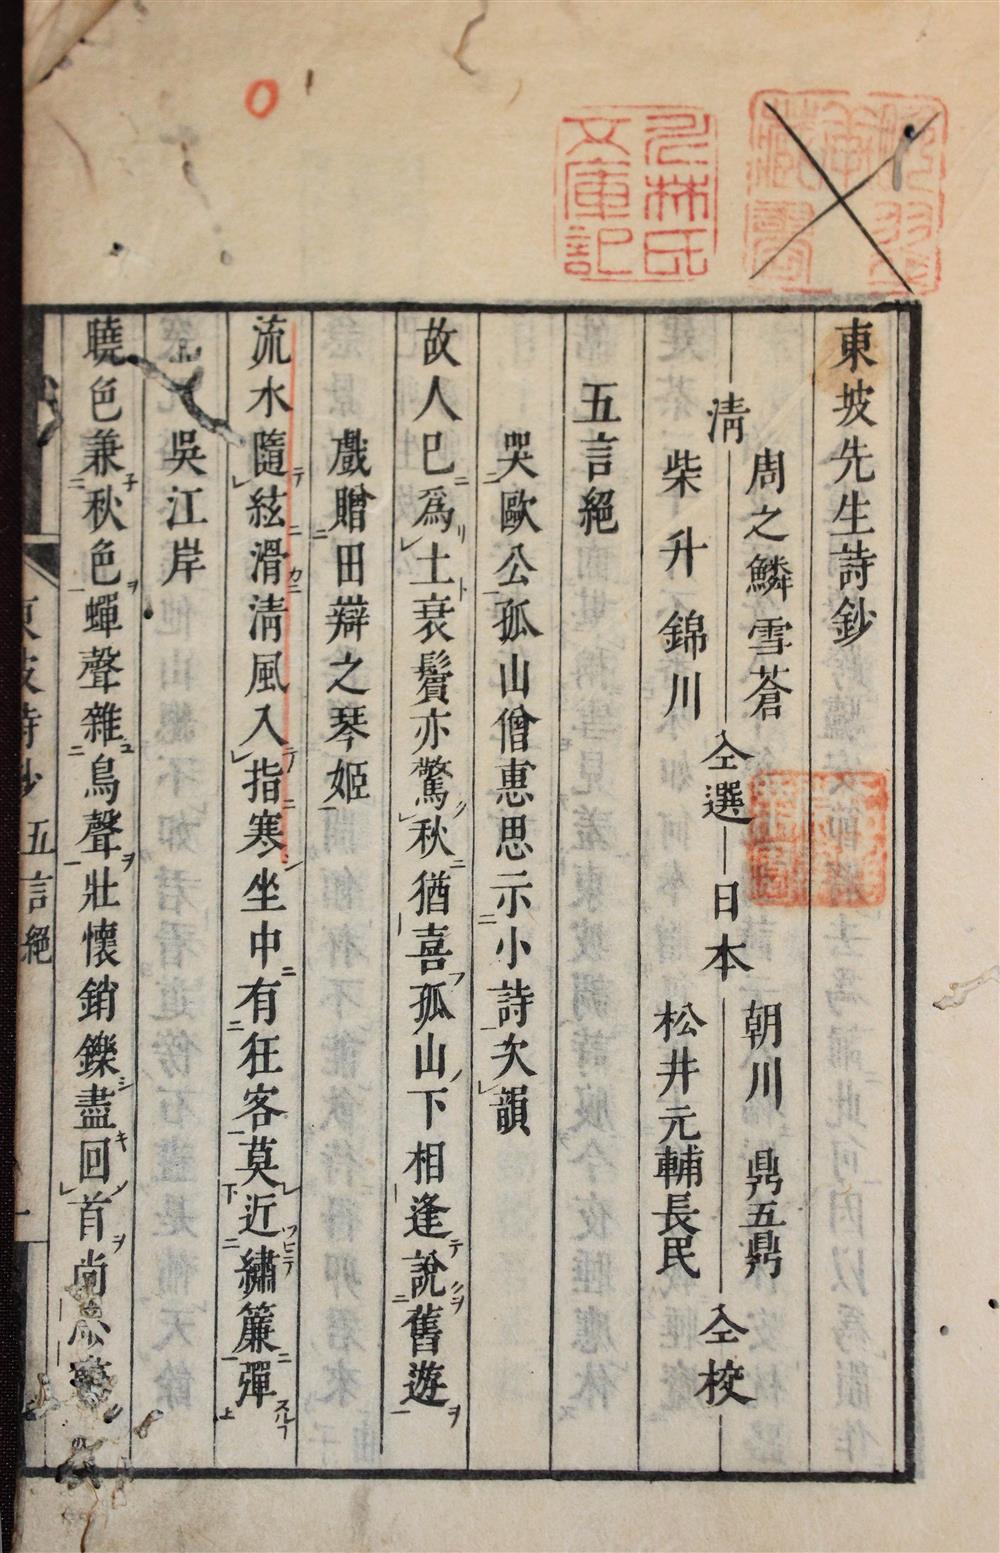 東坡先生詩鈔
清 周之鱗雪蒼 柴升錦川 仝選 日本 朝川鼎五鼎 松井元輔長民 仝校
五言絕
哭歐公孤山僧惠思示小詩次韻
故人已爲土衰鬢亦驚秋猶喜孤山下相逢說舊遊
戲贈田辯之琴姬
流水隨絃滑淸風入指寒坐中有狂客莫近繡簾彈
吳江岸
曉色兼秋色蟬聲雜鳥聲壯懷銷鑠盡回首尚
東坡詩鈔 五言絕 一
林氏文庫記